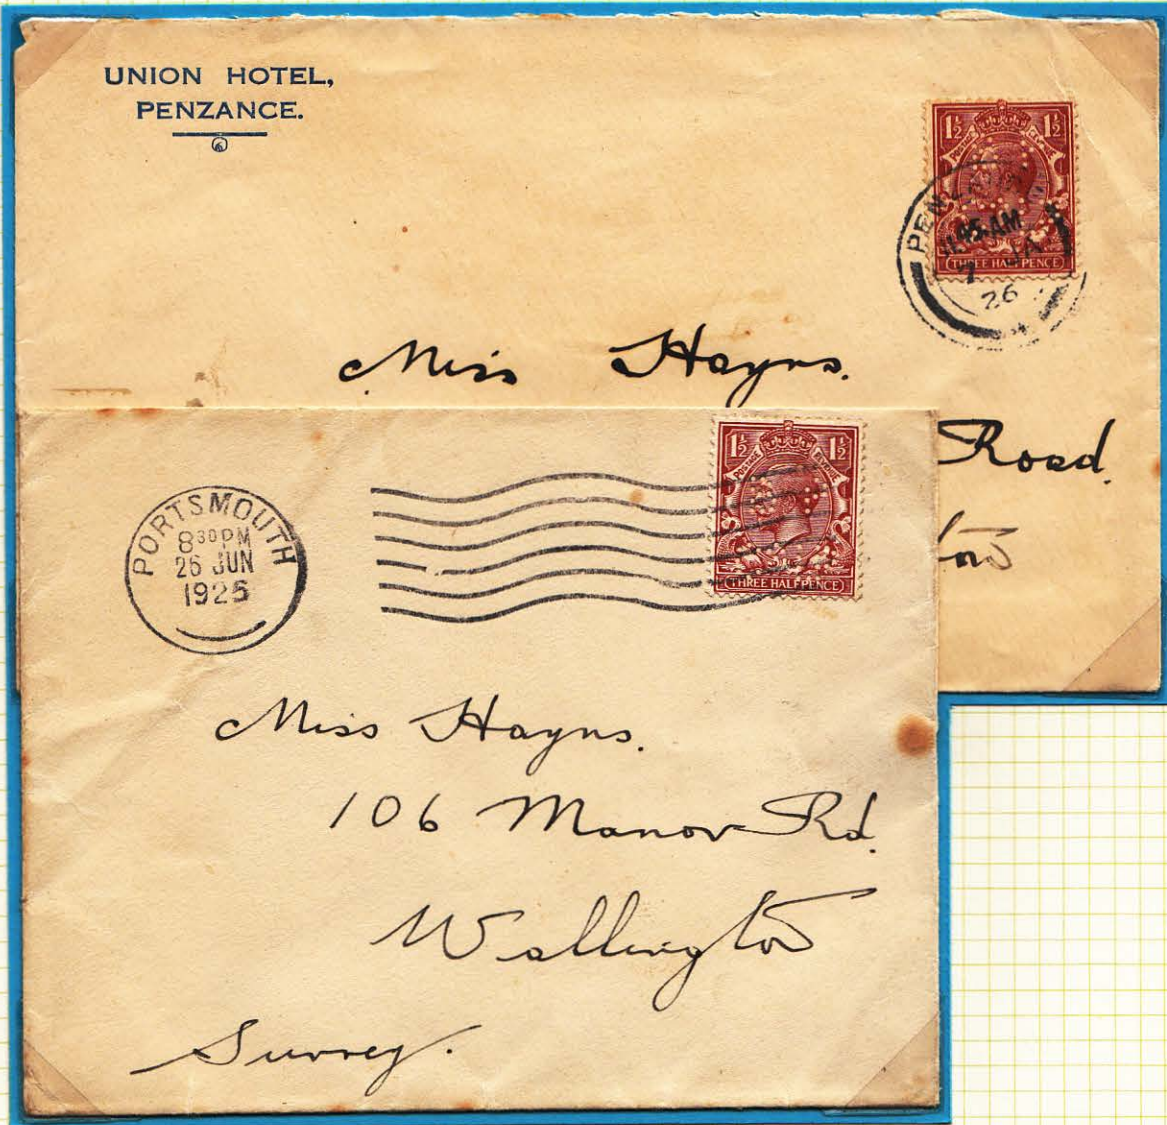 UNION HOTEL,
PENZANCE.
1½ 1½
POSTAGE REVENUE
THREE HALFPENCE
PENZANCE
11.45 AM
7 JA
26
Miss Hayns.
Road.
PORTSMOUTH
8 30 PM
26 JUN
1925
1½ 1½
POSTAGE REVENUE
THREE HALFPENCE
Miss Hayns.
106 Manor Rd.
Wallington
Surrey.